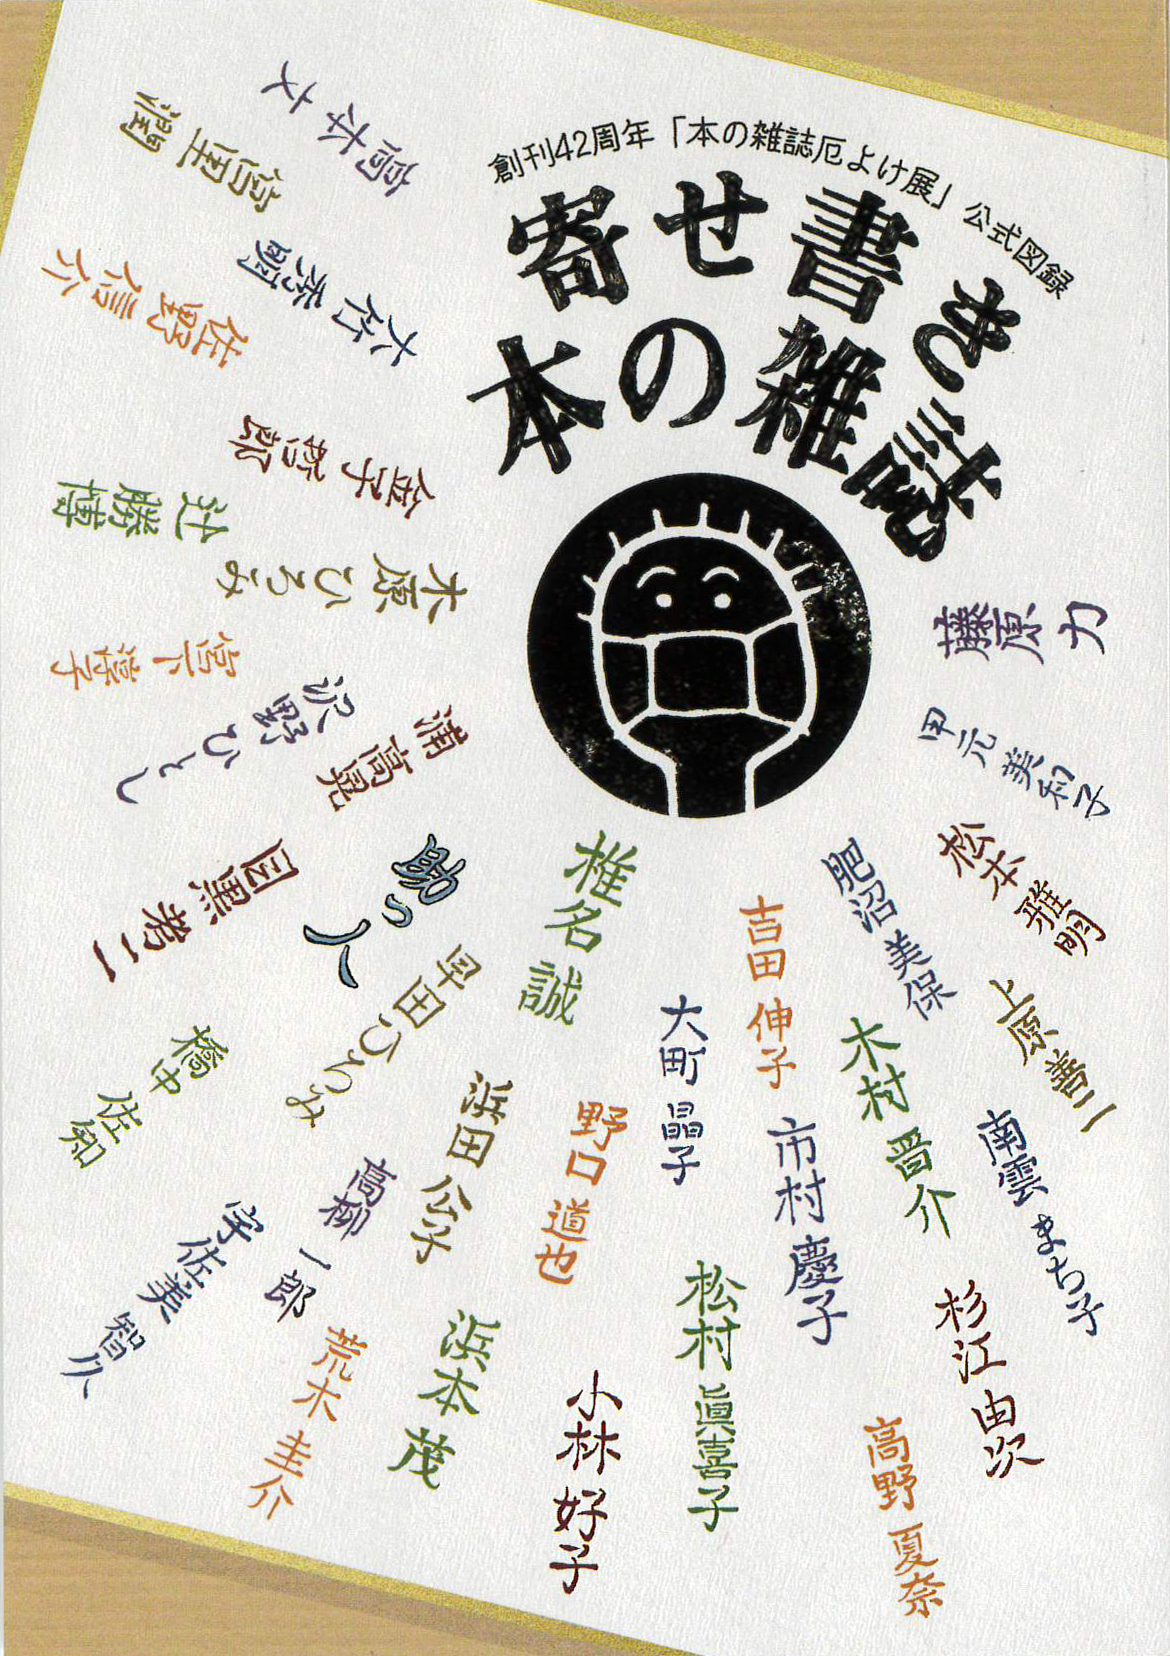 創刊42周年「本の雑誌厄よけ展」公式図録
寄せ書き
本の雑誌
藤原 力
甲元 美和子
松本 雅明
上原 善二
南雲 まち子
肥沼 美保
木村 晋介
杉江 由次
高野 夏奈
吉田 伸子
市村 慶子
大町 晶子
松村 眞喜子
椎名 誠
野口 道也
小林 好子
浜田 公子
浜本 茂
助っ人
早田 ひろみ
高柳 一郎
荒木 圭介
宇佐美 智久
橋中 佐知
目黒 考二
浦 高晃
沢野 ひとし
宮下 淳子
木原 ひろみ
辻 勝博
金子 哲郎
大谷 秀明
佐野 信介
宮里 潤